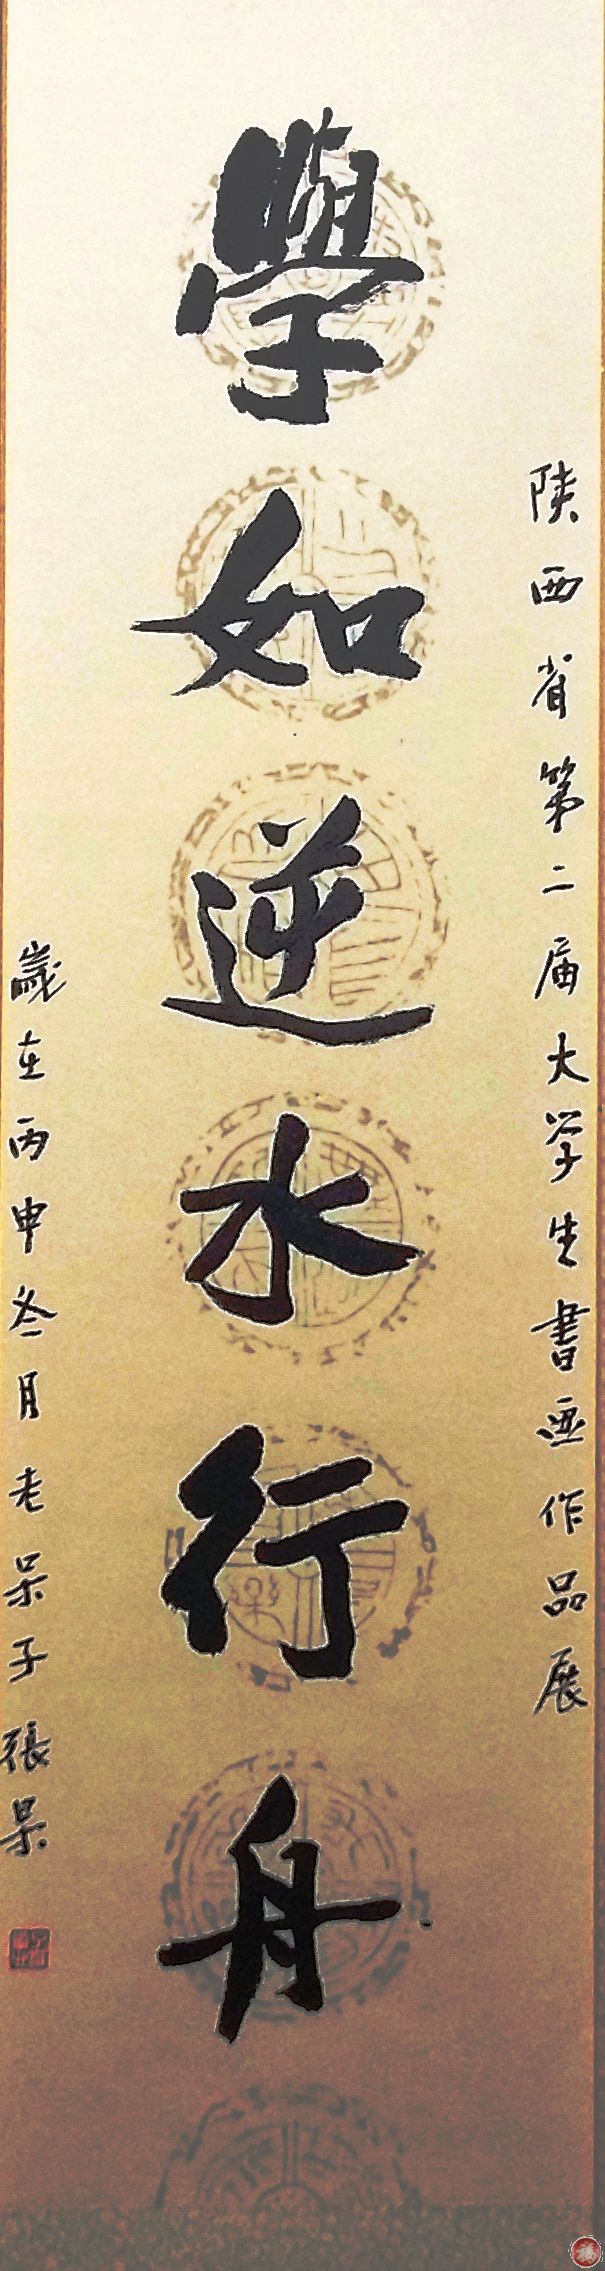 陕西省第二届大学生書画作品展
學如逆水行舟
歲在丙申冬月老呆子張杲